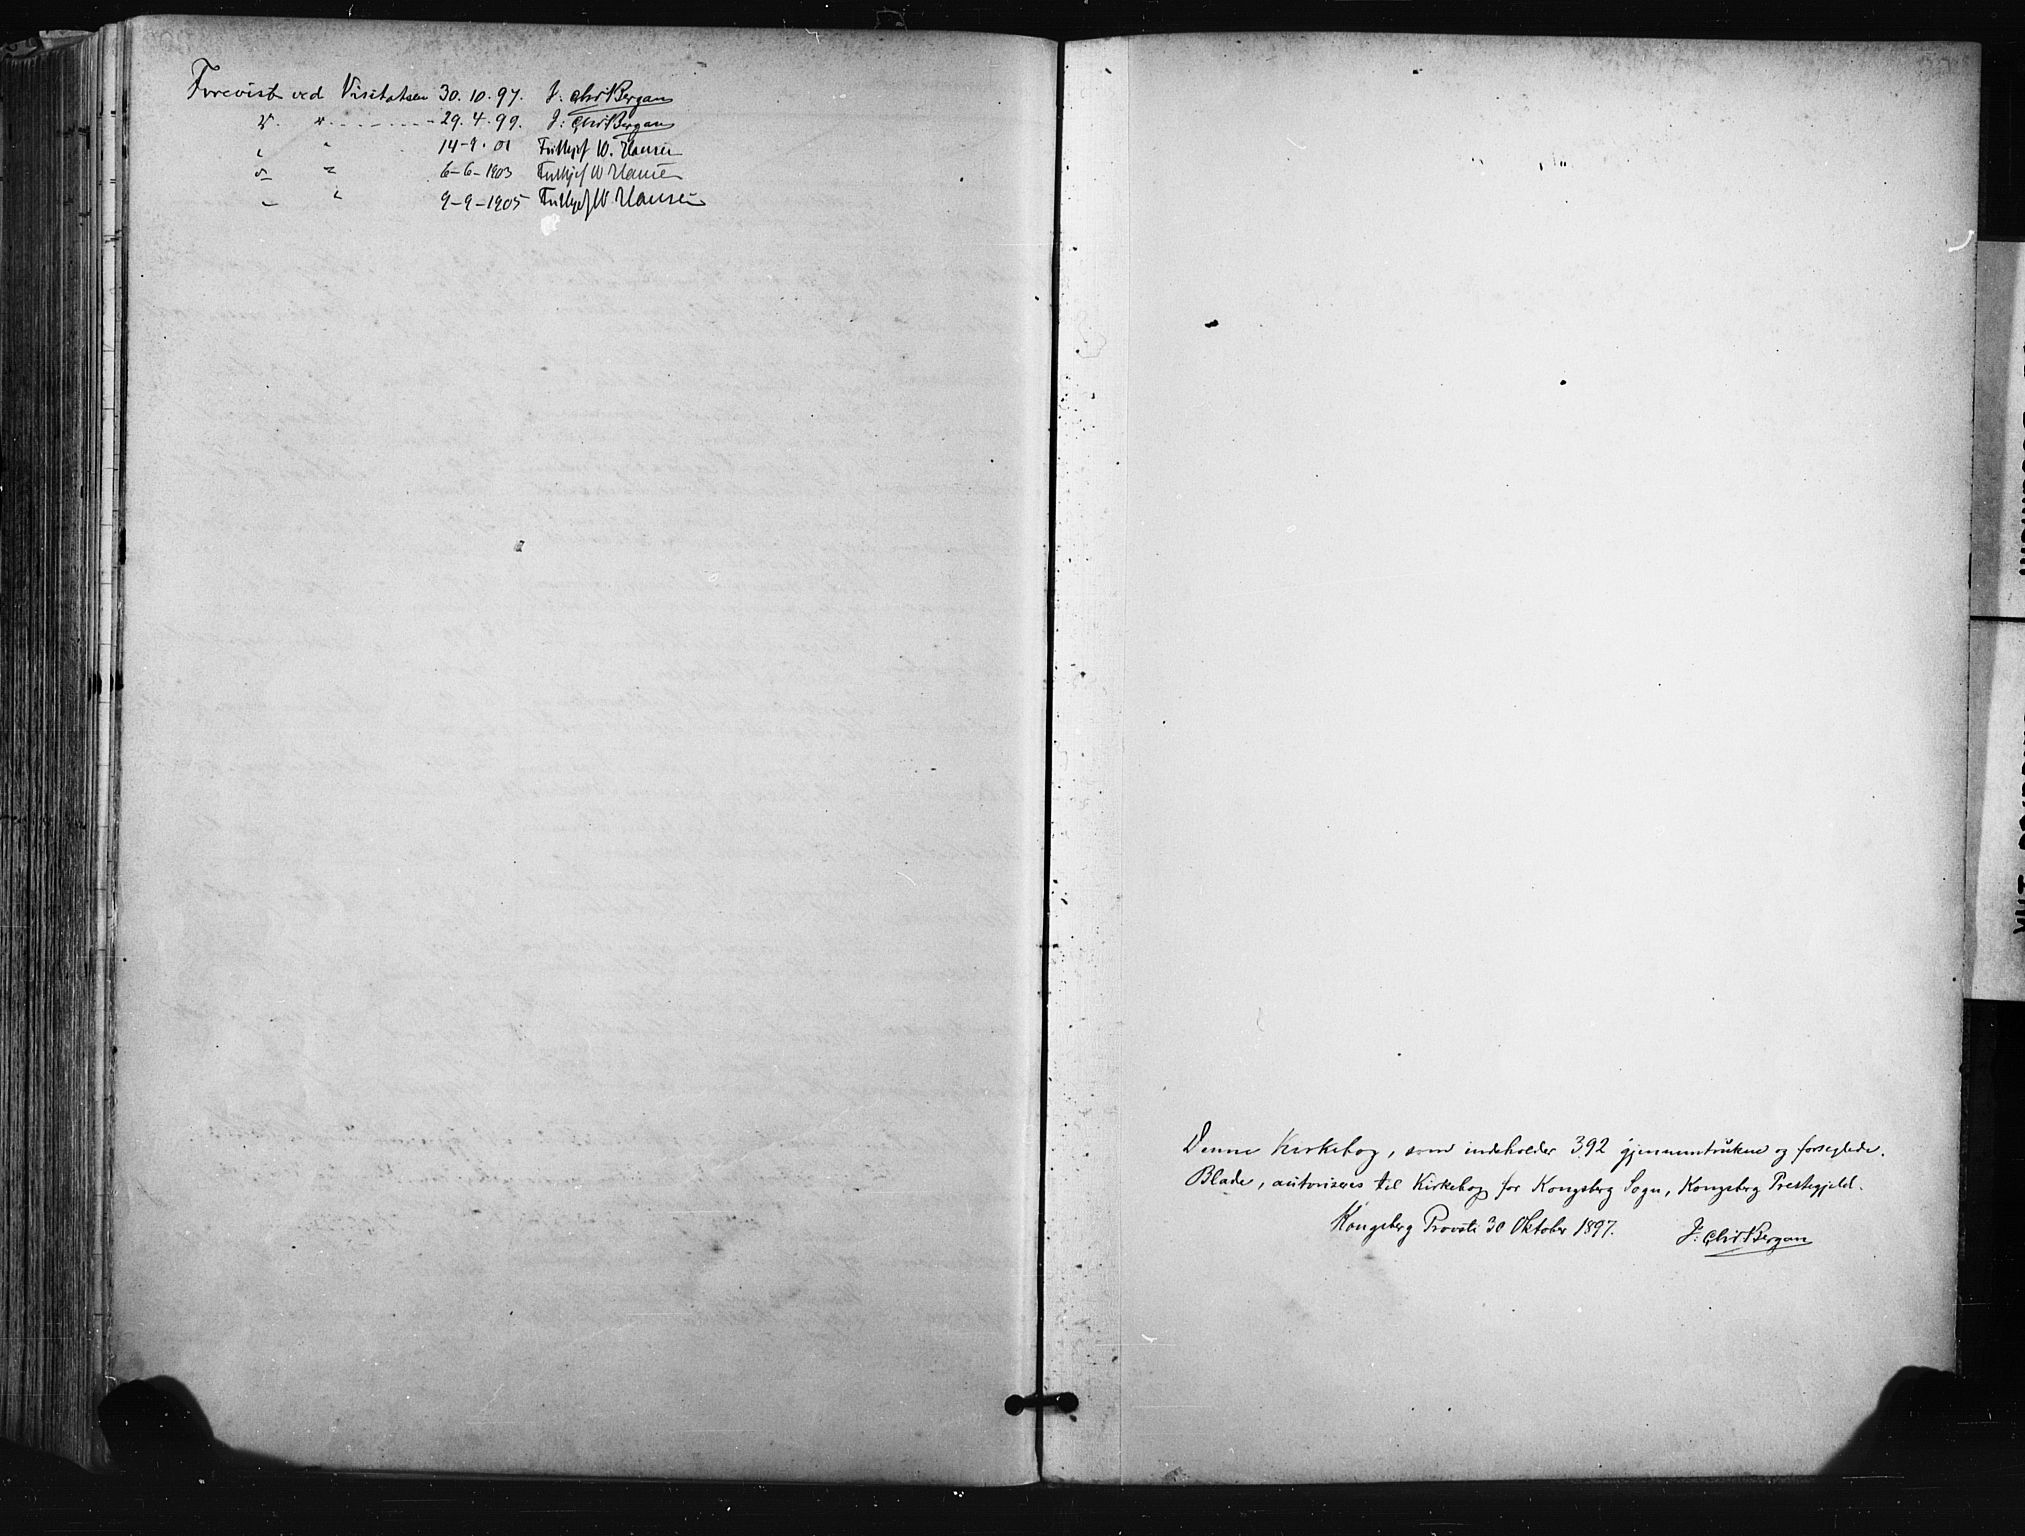 Forevist ved Visitatsen 30.10.97. J. Chr Bergan
" " - - - - - - - 29.4.99. J: Chr Bergan
" " 14-9-01 Fridthjof W. Hansen
" " 6-6-1903 Fridthjof W Hansen
" " 9-9-1905 Fridthjof W Hansen
Denne Kirkebog, som indeholder 392 gjennemtrukne og forseglede
Blade, autoriseres til Kirkebog for Kongsberg Sogn, Kongsberg Prestegjeld.
Kongsberg Provsti 30 Oktober 1897. J: Chr Bergan